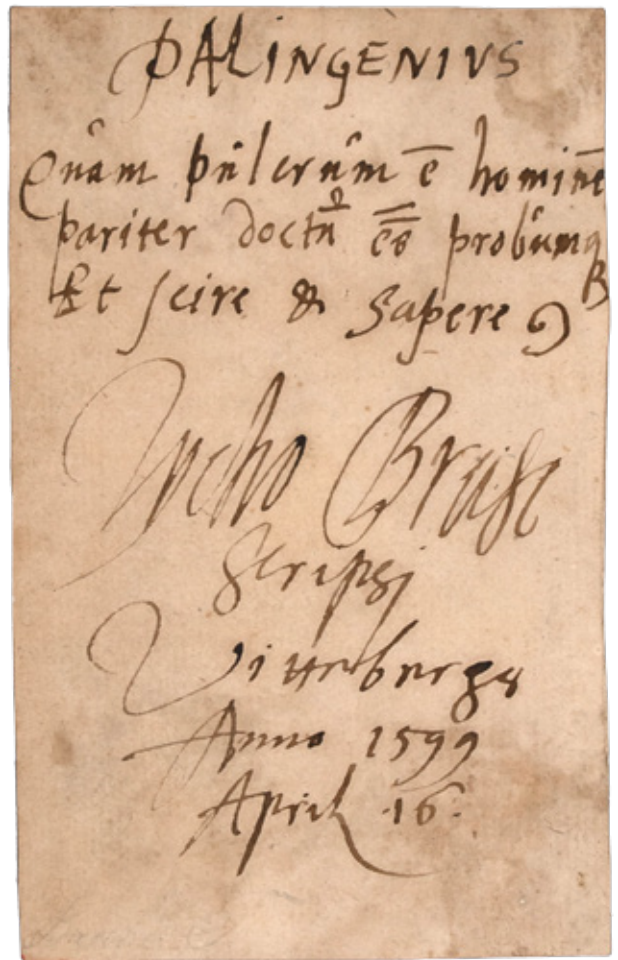 PALINGENIVS
Quam pulcrum ē hominē
pariter doctū ēē probumq
Et scire & Sapere
Tycho Brahe
scripsi
Vitteberge
Anno 1599
April 16.